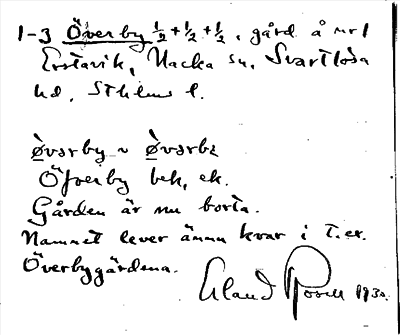 1-3 Överby ½+½+½, gård å nr 1
Erstavik, Nacka sn, Svartlösa
hd, Sthlms l.
Øvərby ~ Øvərbɩ
Öfverby bek, ek.
Gården är nu borta.
Namnet lever ännu kvar i t.ex.
Överbygärdena.
Erland Rosell 1930.